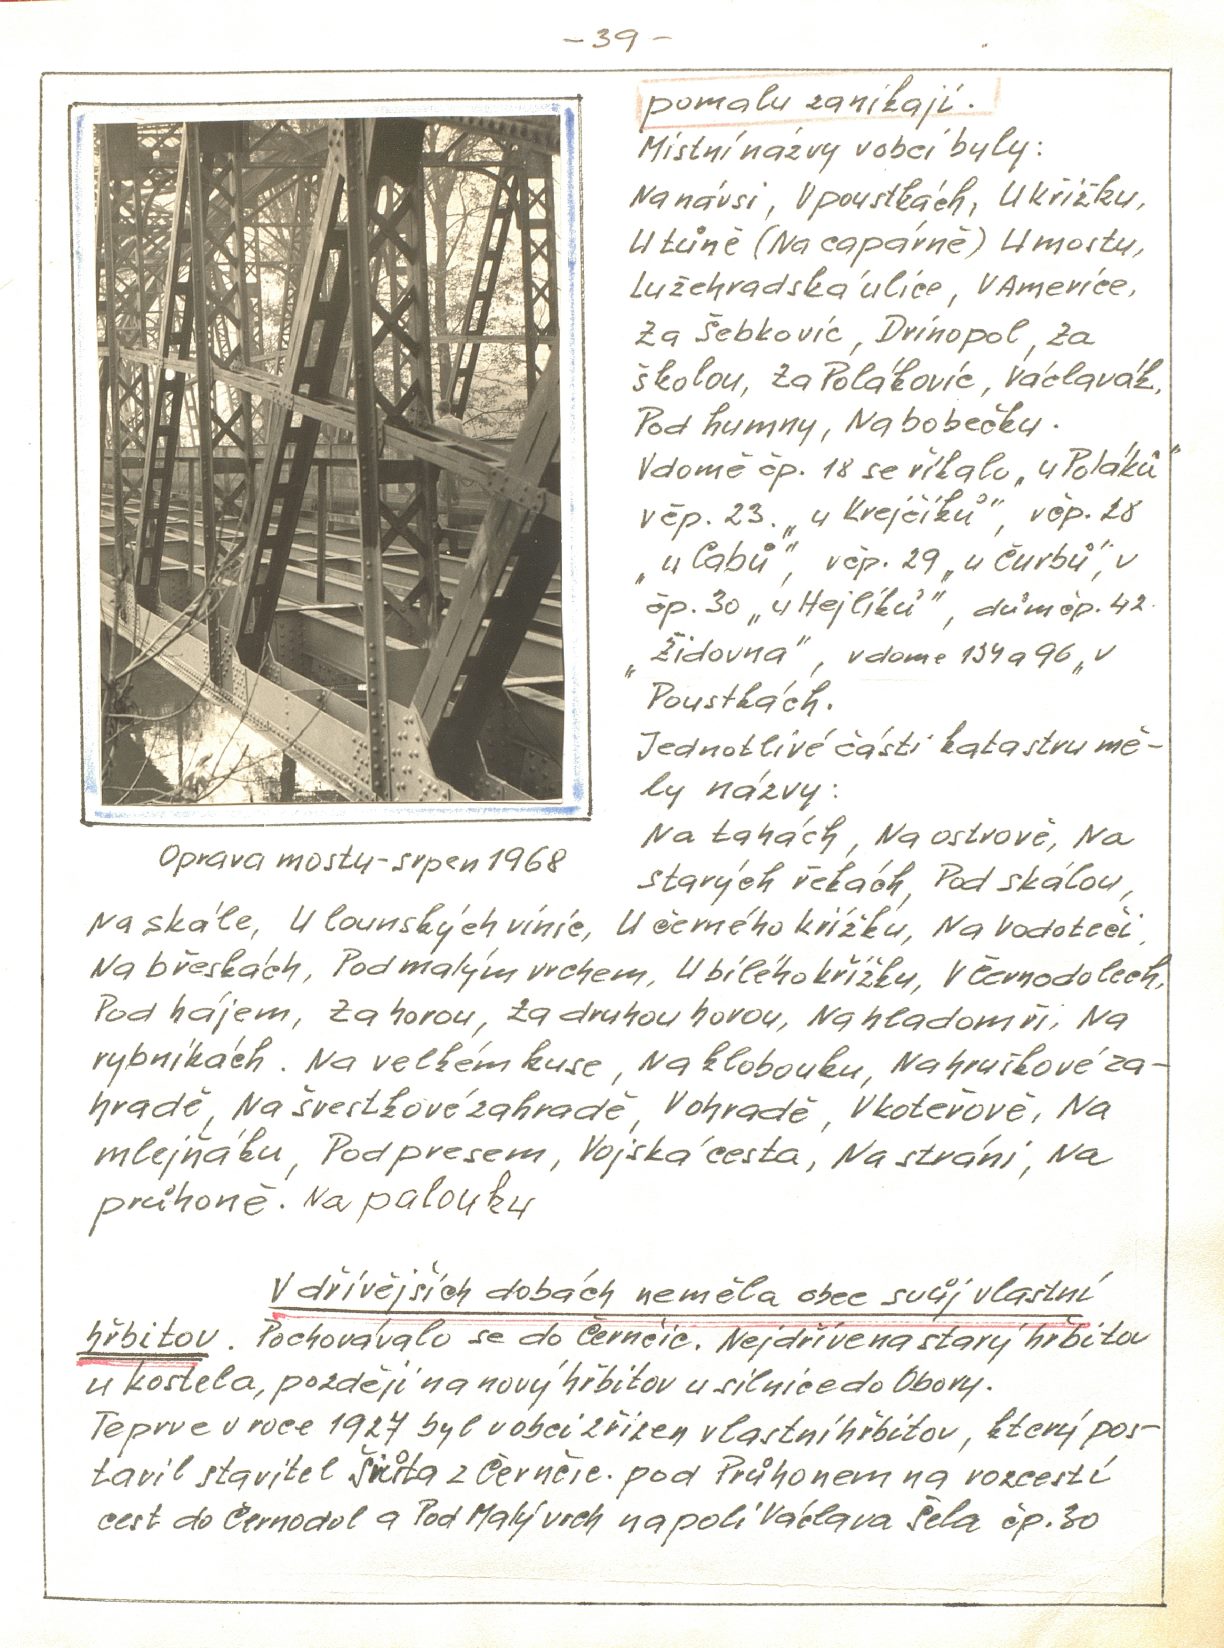 - 39 -
pomalu zanikají.
Místní názvy v obci byly:
Na návsi, V poustkách, U křížku,
U tůně (Na capárně) U mostu,
Lužehradská ulice, V Americe,
Za Šebkovic, Drinopol, Za
školou, Za Polákovic, Václavák,
Pod humny, Na bobečku.
V domě čp. 18 se říkalo „u Poláků"
v čp. 23. „u Krejčíků", v čp. 28
„u Cabů", v čp. 29 „u Čurbů", v
čp. 30 „u Hejlíků", dům čp. 42.
„Židovna", v dome 134 a 96 „v
Poustkách.
Jednotlivé části katastru mě-
ly názvy:
Na tahách, Na ostrově, Na
starých řekách, Pod skálou,
Oprava mostu - srpen 1968
Na skále, U lounských vinic, U černého křížku, Na vodoteči,
Na břeskách, Pod malým vrchem, U bílého křížku, V Černodolech,
Pod hájem, Za horou, Za druhou horou, Na hladomři, Na
rybníkách. Na velkém kuse, Na klobouku, Na hruškové za-
hradě, Na švestkové zahradě, V ohradě, V koteřově, Na
mlejňáku, Pod presem, Vojská cesta, Na stráni, Na
průhoně. Na palouku
V dřívějších dobách neměla obec svůj vlastní
hřbitov. Pochovávalo se do Černčic. Nejdříve na starý hřbitov
u kostela, později na nový hřbitov u silnice do Obory.
Teprve v roce 1927 byl v obci zřízen vlastní hřbitov, který pos-
tavil stavitel z Černčic. pod Průhonem na rozcestí
cest do Černodol a Pod Malý vrch na poli Václava Šela čp. 30